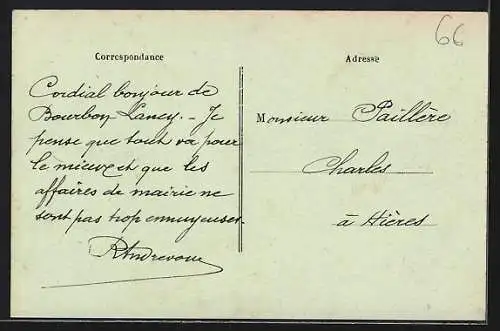 66
Correspondance
Adresse
Cordial bonjour de
Bourbon Lancy. - Je
pense que tout va pour
le mieux et que les
affaires de mairie ne
sont pas trop ennuyeuses.
Monsieur Paillère
Charles
à Hières